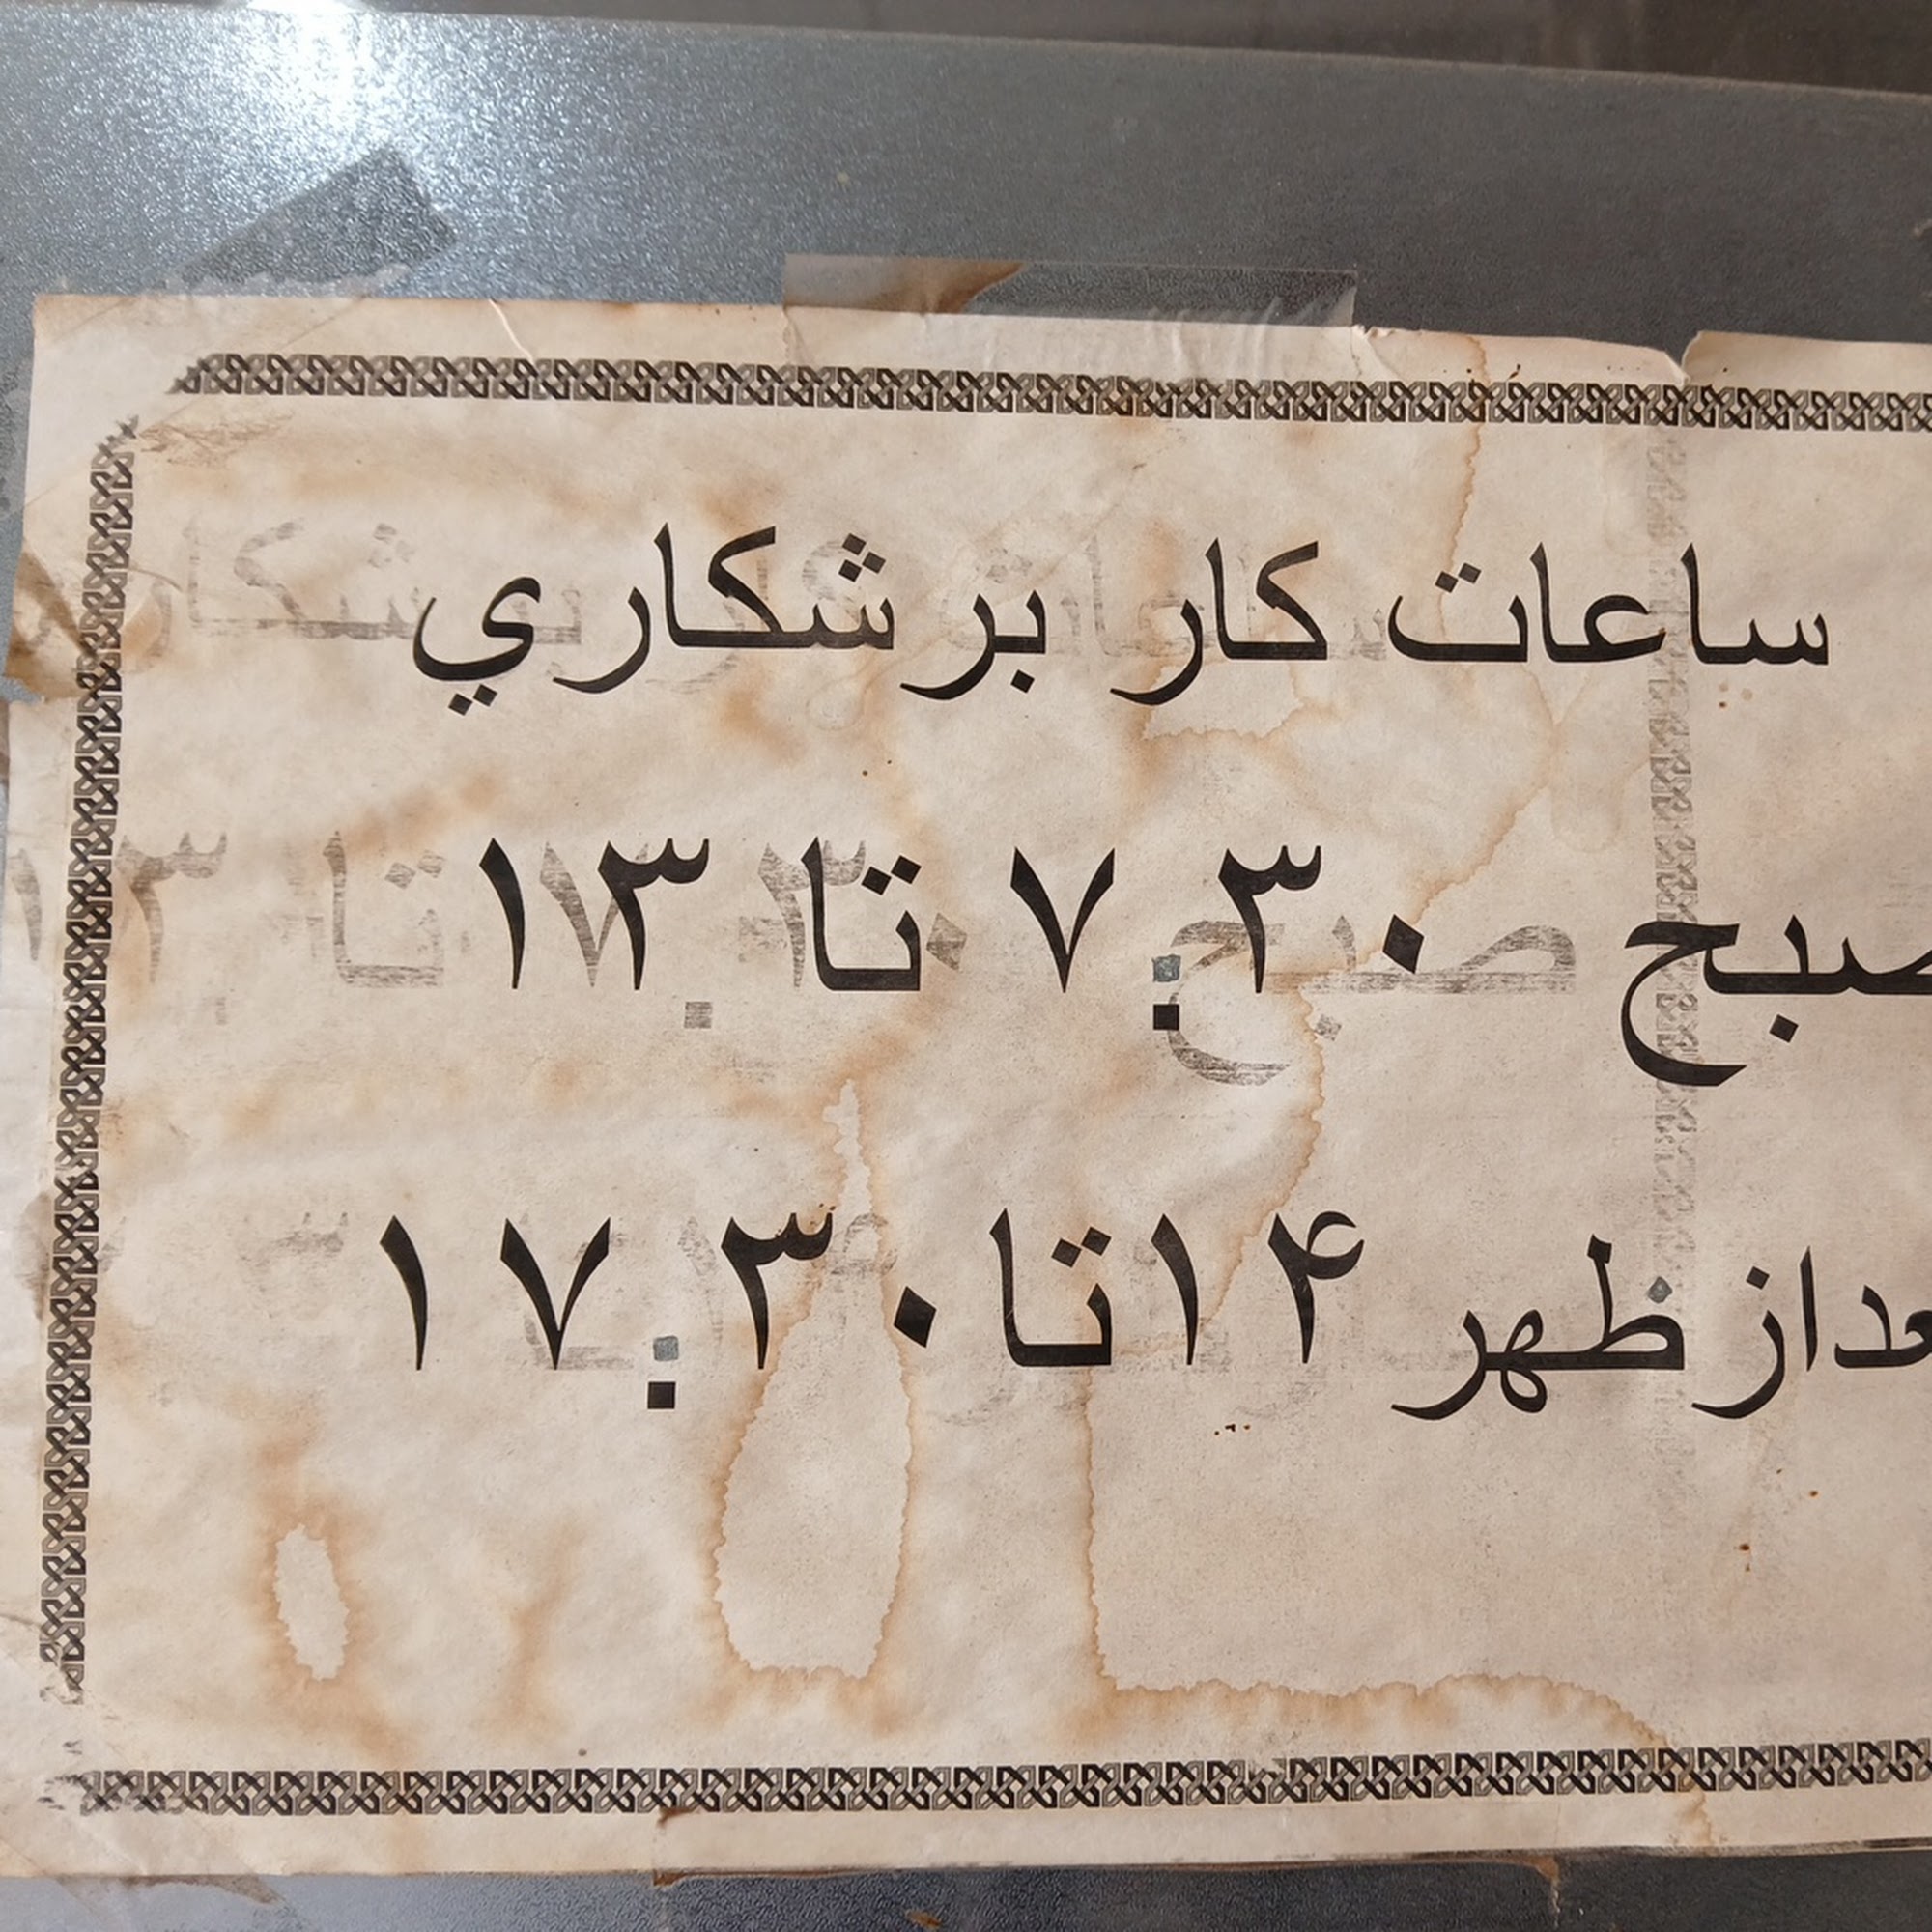 ساعات کار بر شکاري
صبح ۷:۳۰ تا ۱۳
بعداز ظهر ۱۴ تا ۱۷:۳۰